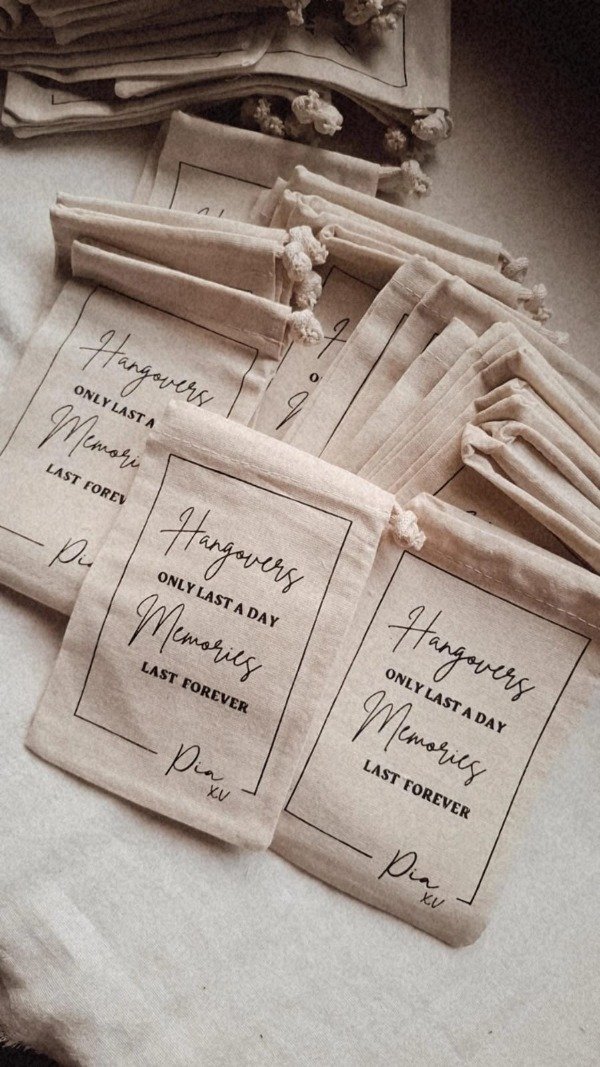 Hangovers
ONLY LAST A
Memori
LAST FOREV
Pi
Hangovers
ONLY LAST A DAY
Memories
LAST FOREVER
Pia
XV
Hangovers
ONLY LAST A DAY
Memories
LAST FOREVER
Pia
XV